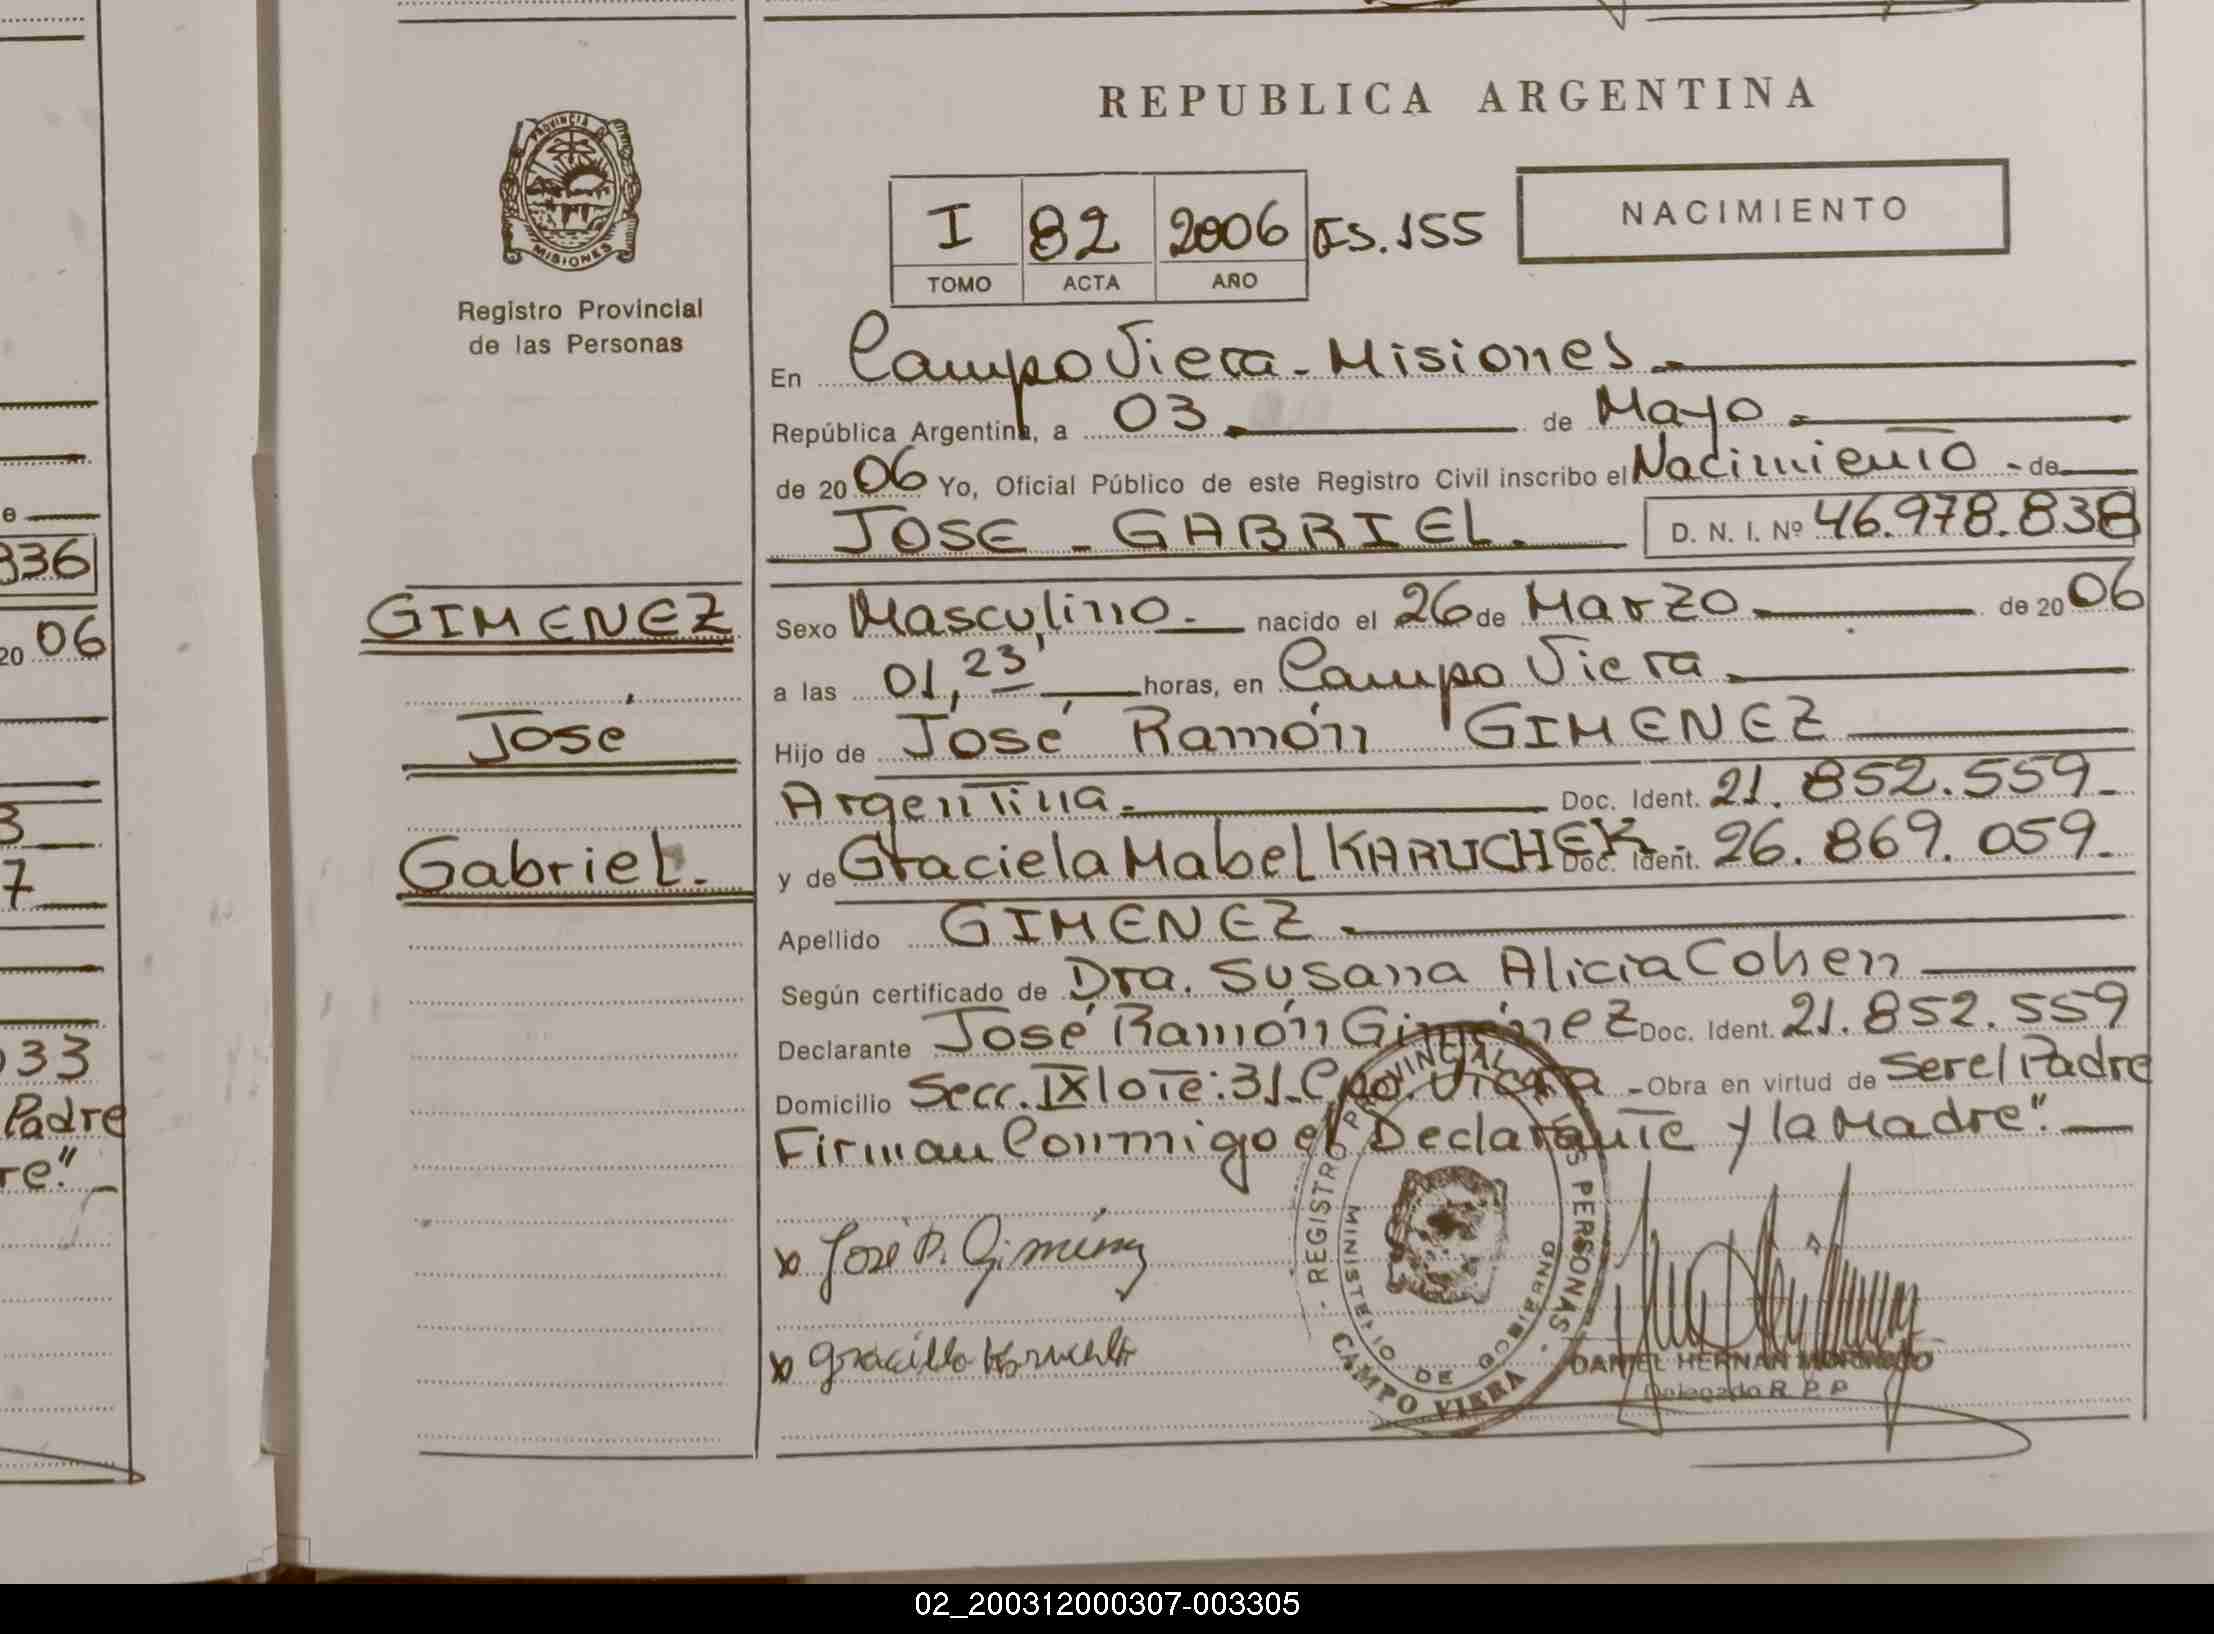 REPUBLICA ARGENTINA
PROVINCIA DE
MISIONES
Registro Provincial
de las Personas
I 82 2006 Fs. 155
TOMO ACTA AÑO
NACIMIENTO
En Campo Viera - Misiones
República Argentina, a 03 de Mayo
de 2006 Yo, Oficial Público de este Registro Civil inscribo el Nacimiento - de
JOSE - GABRIEL. D. N. I. Nº 46.978.838
GIMENEZ
José
Gabriel.
Sexo Masculino. nacido el 26 de Marzo de 2006
a las 01,23' horas, en Campo Viera
Hijo de José Ramón GIMENEZ
Argentina. Doc. Ident. 21.852.559_
y de Graciela Mabel KARUCHEK - Doc. Ident. 26.869.059_
Apellido GIMENEZ
Según certificado de Dra. Susana Alicia Cohen
Declarante José Ramón Giménez Doc. Ident. 21.852.559
Domicilio Secc. IX lote: 31_Cpo. Viera - Obra en virtud de Ser el Padre
Firman Conmigo el Declarante y la Madre".
José R. Gimenez
REGISTRO PROVINCIAL DE LAS PERSONAS
MINISTERIO DE GOBIERNO
CAMPO VIERA
DANIEL HERNAN
Delegado R. P. P.
e
336
20 06
3
7
033
Padre
re".
02_200312000307-003305